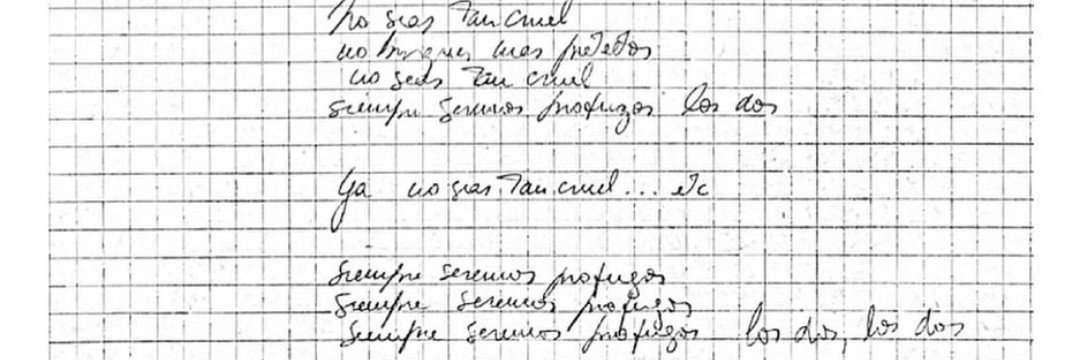 no seas tan cruel
no busques mas pretextos
no seas tan cruel
siempre seremos profugos los dos
Ya no seas tan cruel... etc
Siempre seremos profugos
Siempre seremos profugos
Siempre seremos profugos los dos, los dos